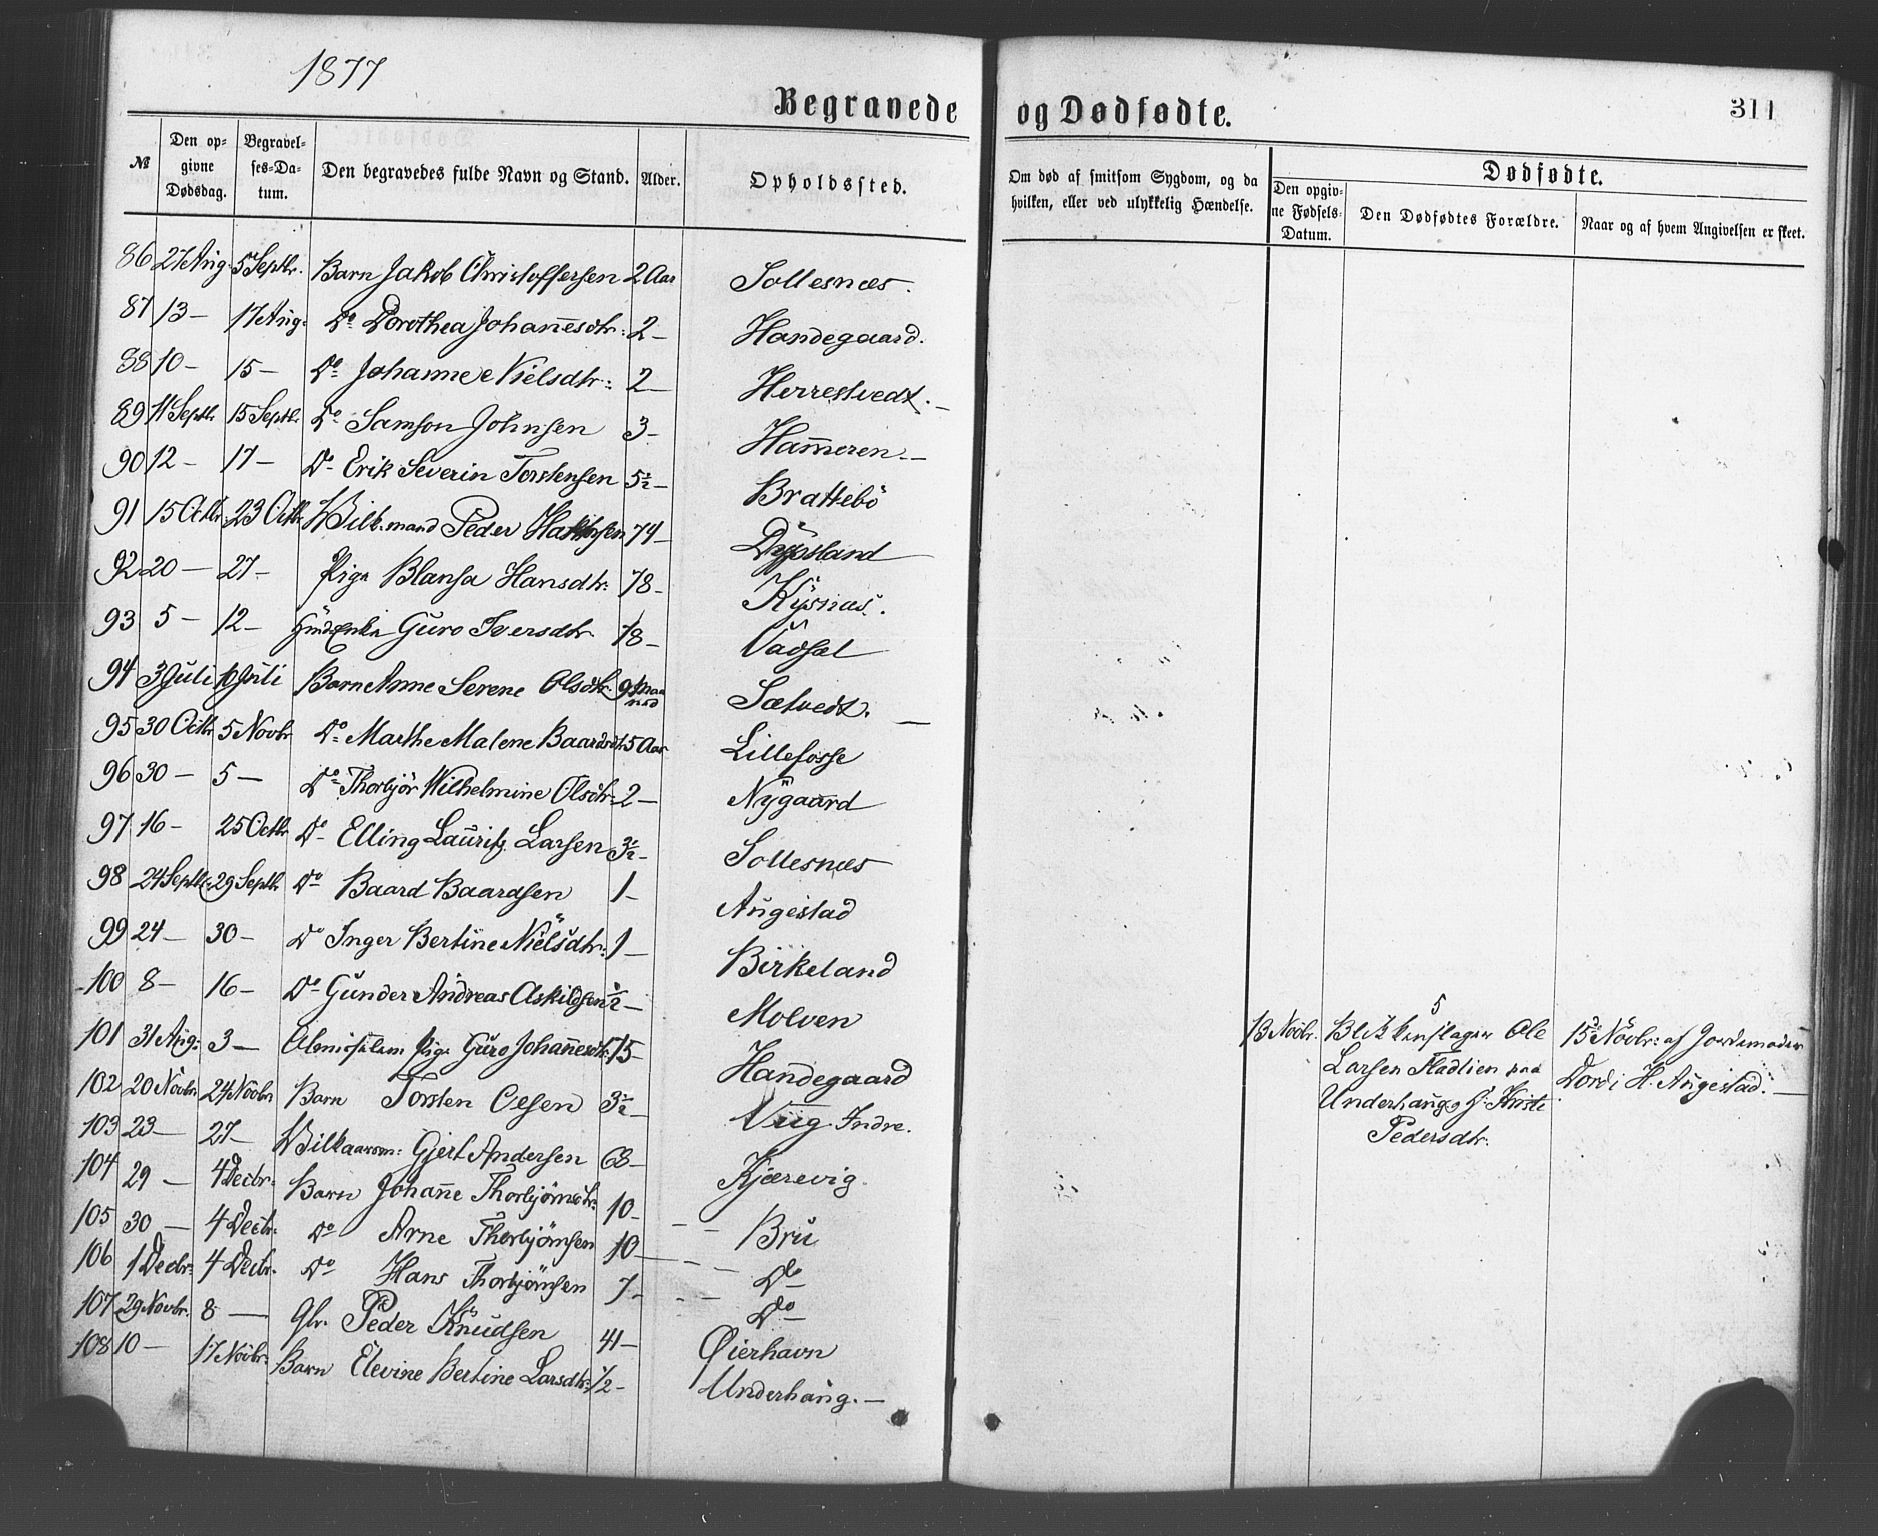 1877
Begravede og Dødfødte.
311
№
Den opgivne Dødsdag.
Begravelses-Datum.
Den begravedes fulde Navn og Stand.
Alder.
Opholdssted.
Om død af smitsom Sygdom, og da hvilken, eller ved ulykkelig Hændelse.
Dødfødte.
Den opgivne Fødsels-Datum.
Den Dødfødtes Forældre.
Naar og af hvem Angivelsen er skeet.
86 27 Aug. 5 Septbr. Barn Jakob Christoffersen 2 Aar Sollesnæs.
87 13 – 17 Aug: Do Dorothea Johannesdtr: 2 – Handegaard.
88 10 – 15 – Do Johanne Nielsdtr: 2 – Herrestvedt. –
89 11 Septbr 15 Septbr Do Samson Johnsen 3 – Hammeren. –
90 12 – 17 – Do Erik Severin Torstensen 5½ – Brattebö
91 15 Octbr: 23 Octbr Peder 74 – Dypsland
92 20 – 27 – Pige Blansa Hansdtr: 78 – Kysnæs.
93 5 – 12 – Enke Guro Iversdtr 78 – Vadsel
94 3 Juli Juli Barn Anne Serene Olsdtr. 9 Maaned Sætvedt. –
95 30 Octbr 5 Novbr Do Marthe Malene Baardsdtr 5 Aar Lillefosse
96 30 – 5 – Do Thorbjör Wilhelmine Olsdtr: 2 – Nygaard
97 16 – 25 Octbr Do Elling Lauritz Larsen 3½ – Sollesnæs
98 24 Septbr: 29 Septbr Do Baard Baardsen 1 – Augestad
99 24 – 30 – Do Inger Bertine Nielsdtr: 1 – Birkeland
100 8 – 16 – Do Gunder Andreas Askildsen ½ – Molven
101 31 Aug: 3 – Pige Guro Johannesdtr: 75 – Handegaard
102 20 Novbr 24 Novbr Barn Torsten Oesen 3½ – Viig Indre.
103 23 – 27 – Gjert Andersen 68 – Kjærevig.
104 29 – 4 Decbr: Barn Johanne Thorbjörnsdtr: 10 – Bru
105 30 – 4 Decbr: Do Arne Thorbjörnsen 10 – Do
106 1 Decbr: 4 Decbr. Do Hans Thorbjörnsen 7 – Do
107 29 Novbr. 8 – Peder Knudsen 41 – Øierhavn
108 10 – 17 Novbr: Barn Elevine Bertine Larsdtr: ½ – Underhaug. –
5
13 Novbr. Blikkenslager Ole 15 Novbr: af Jordemoder
Larsen Fladlien paa Dordi H. Augestad. –
Underhaug og H. Kristi
Pedersdtr.